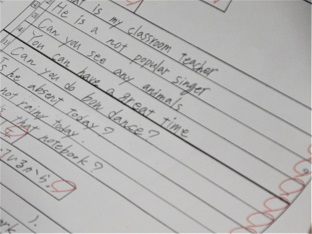 at is my classroom teacher
He is a not popular singer
Can you see any animals
You can have a great time
Can you do bon dance?
s he absent today?
not rainy today.
s that notebook?